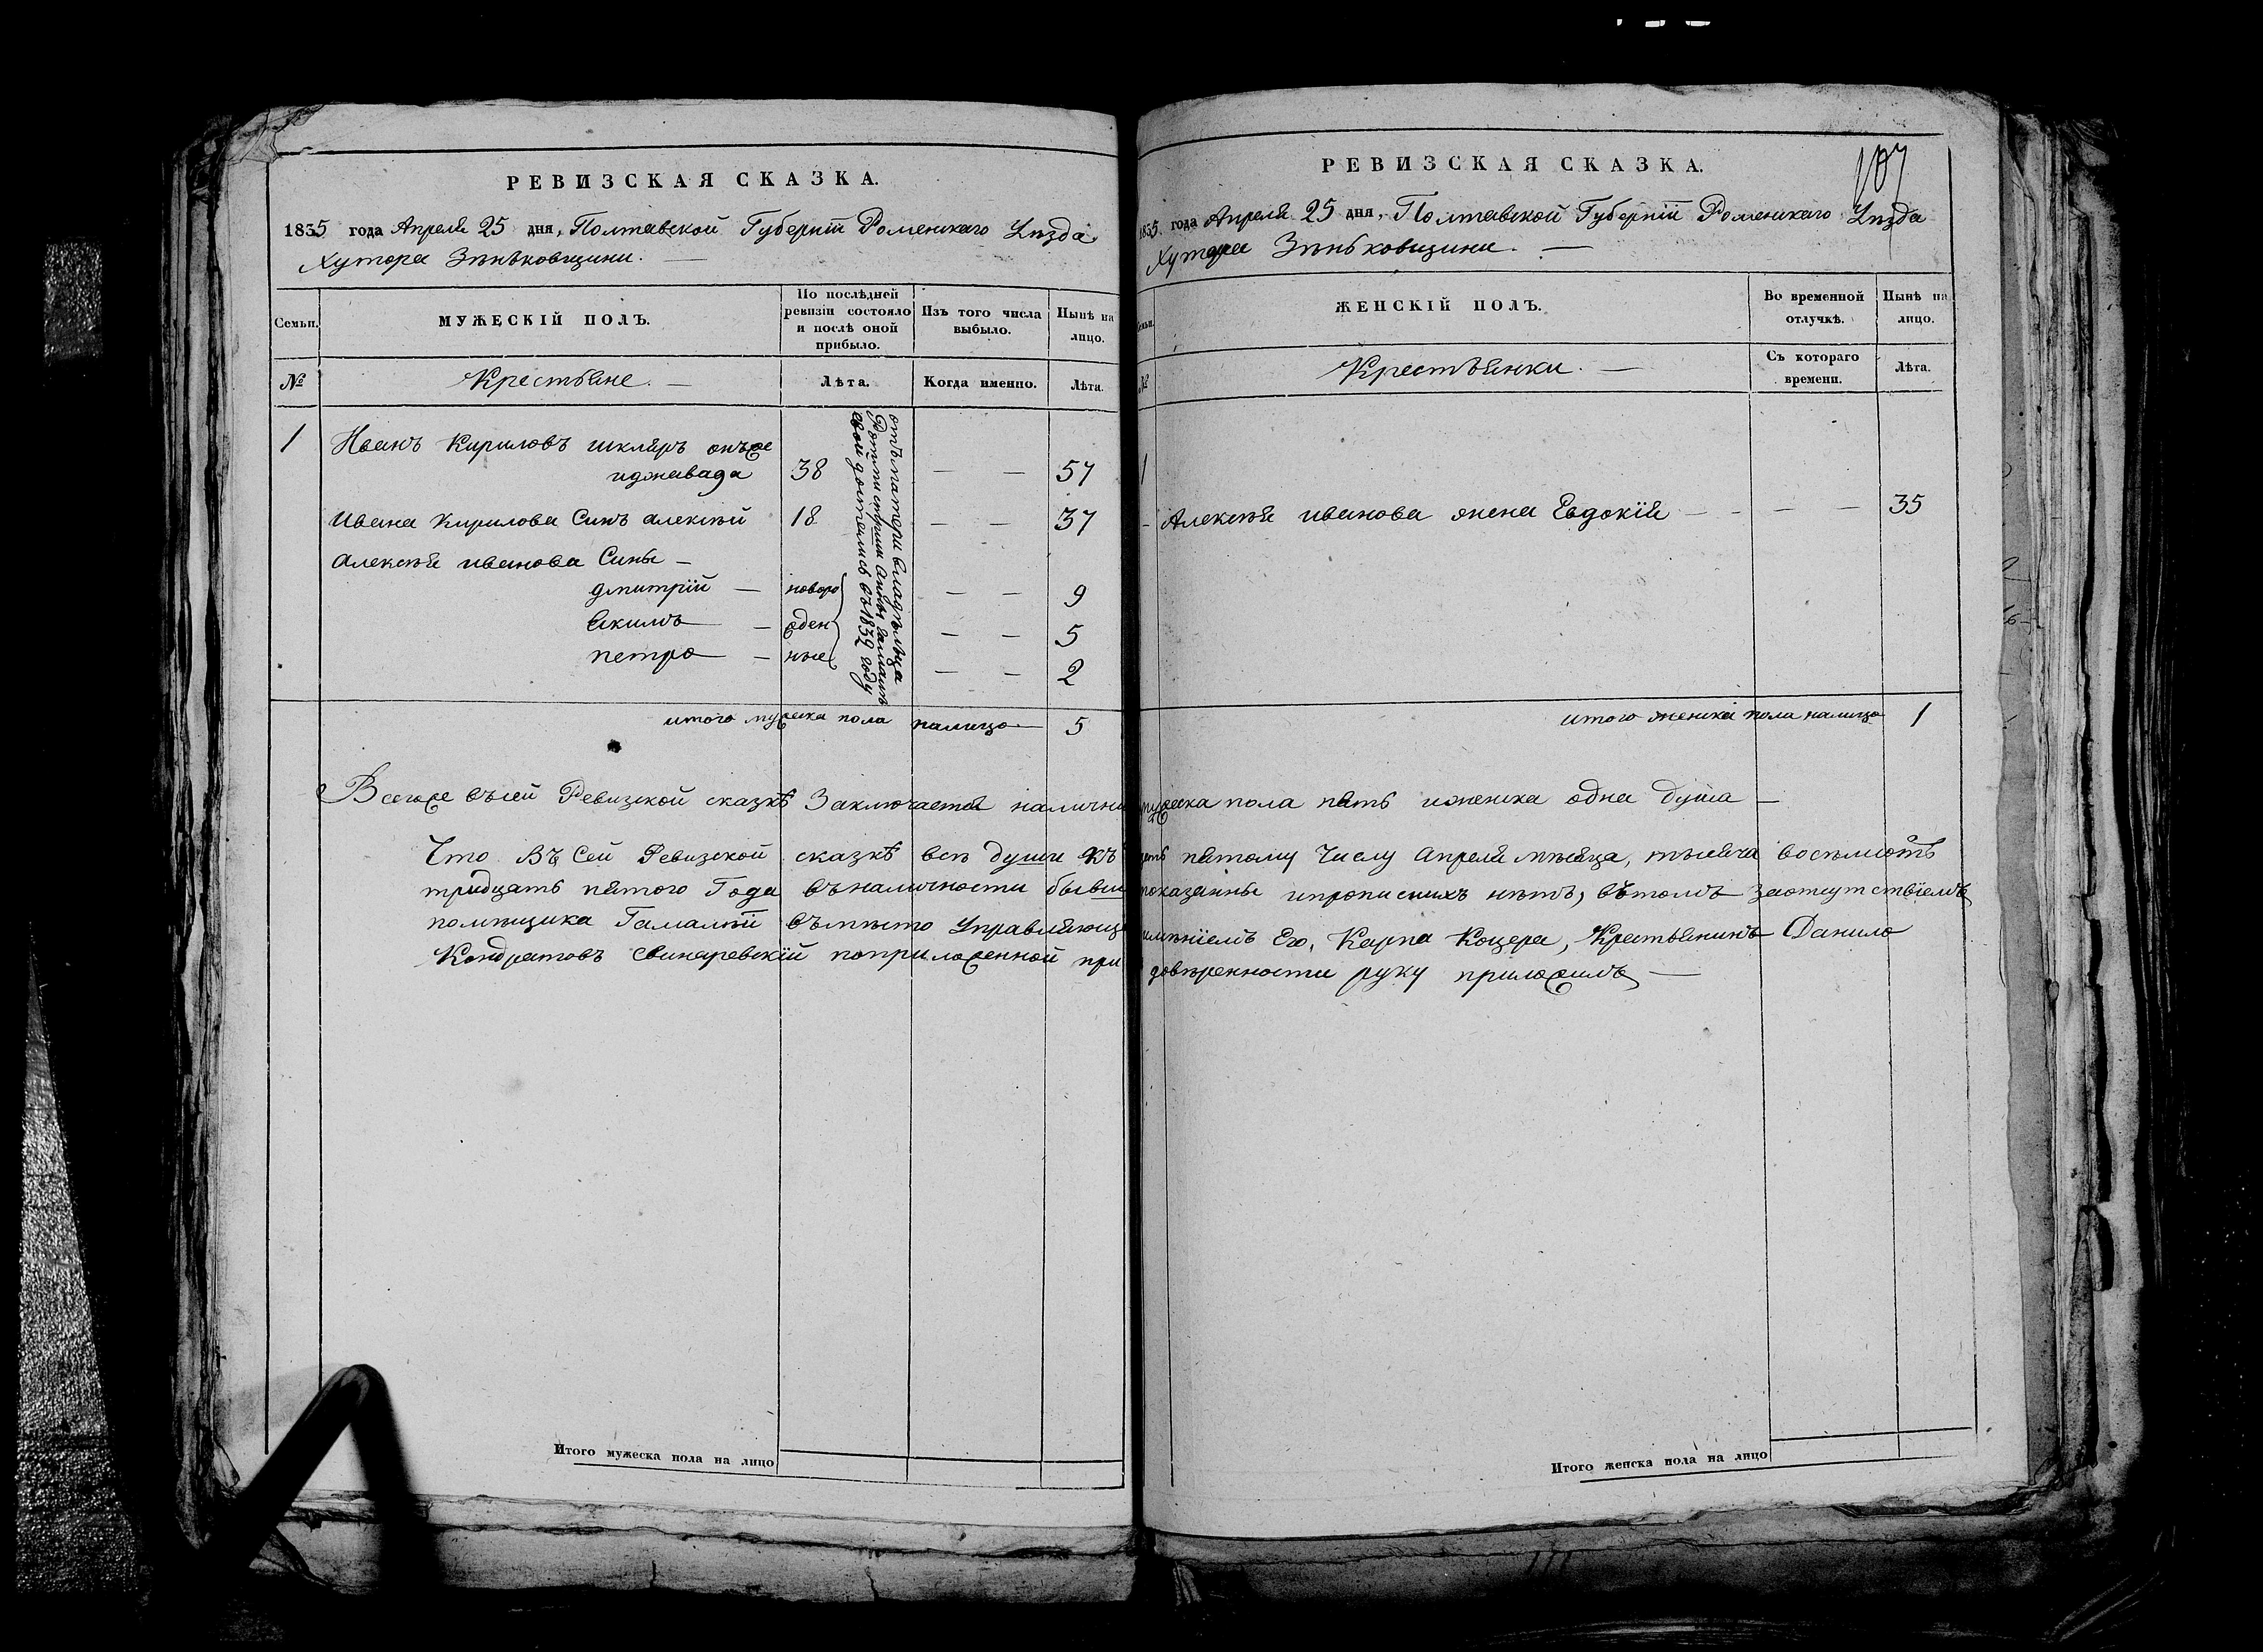 РЕВИЗСКАЯ СКАЗКА.
1835 года Апреля 25 дня, Полтавской Губернiи Роменскаго Уѣзда
Хутора Зѣньковщини. —
Семьи.
МУЖЕСКIЙ ПОЛЪ.
По послѣдней ревизiи состояло и послѣ оной прибыло.
Изъ того числа выбыло.
Нынѣ на лицо.
№
Крестьяне. —
Лѣта.
Когда именно.
Лѣта.
1 Иванъ Кириловъ шкляръ онъже
иджавада 38 — — 57
Ивана Кирилова Синъ алексѣй 18 — — 37
Алексѣя иванова Сины —
дмитрiй — новоро — — 9
Екимъ — жден — — 5
петро — ные — — 2
отъ матери владѣльца
доставшись въ 1832 году
итого мужеска пола налицо — 5
РЕВИЗСКАЯ СКАЗКА.
107
1835 года Апреля 25 дня, Полтавской Губернiи Роменскаго Уѣзда
Хутора Зѣньковщини. —
ЖЕНСКIЙ ПОЛЪ.
Во временной отлучкѣ.
Нынѣ на лицо.
№
Крестьянки. —
Съ котораго времени.
Лѣта.
1
- Алексѣя иванова жена Евдокiя — - — — 35
итого женска пола налицо 1
Всегоже въсей Ревизской сказкѣ Заключается налични мужеска пола пять иженска одна душа —
Что Въ Сей Ревизской сказкѣ всѣ души къ пятому Числу Апреля мѣсяца, тысяча восѣмъсотъ
тридцать пятого Года въналичности бывши показанны ипрописнихъ нѣтъ, вътомъ заотсутствiемъ
помѣщика Гамалѣй вмѣсто Управляющ имѣнiемъ Его, Карпа Коцера, Крестьянинъ Данило
Кондратовъ Свинаревскiй поприложенной при довѣренности руку приложилъ —
Итого мужеска пола на лицо
Итого женска пола на лицо